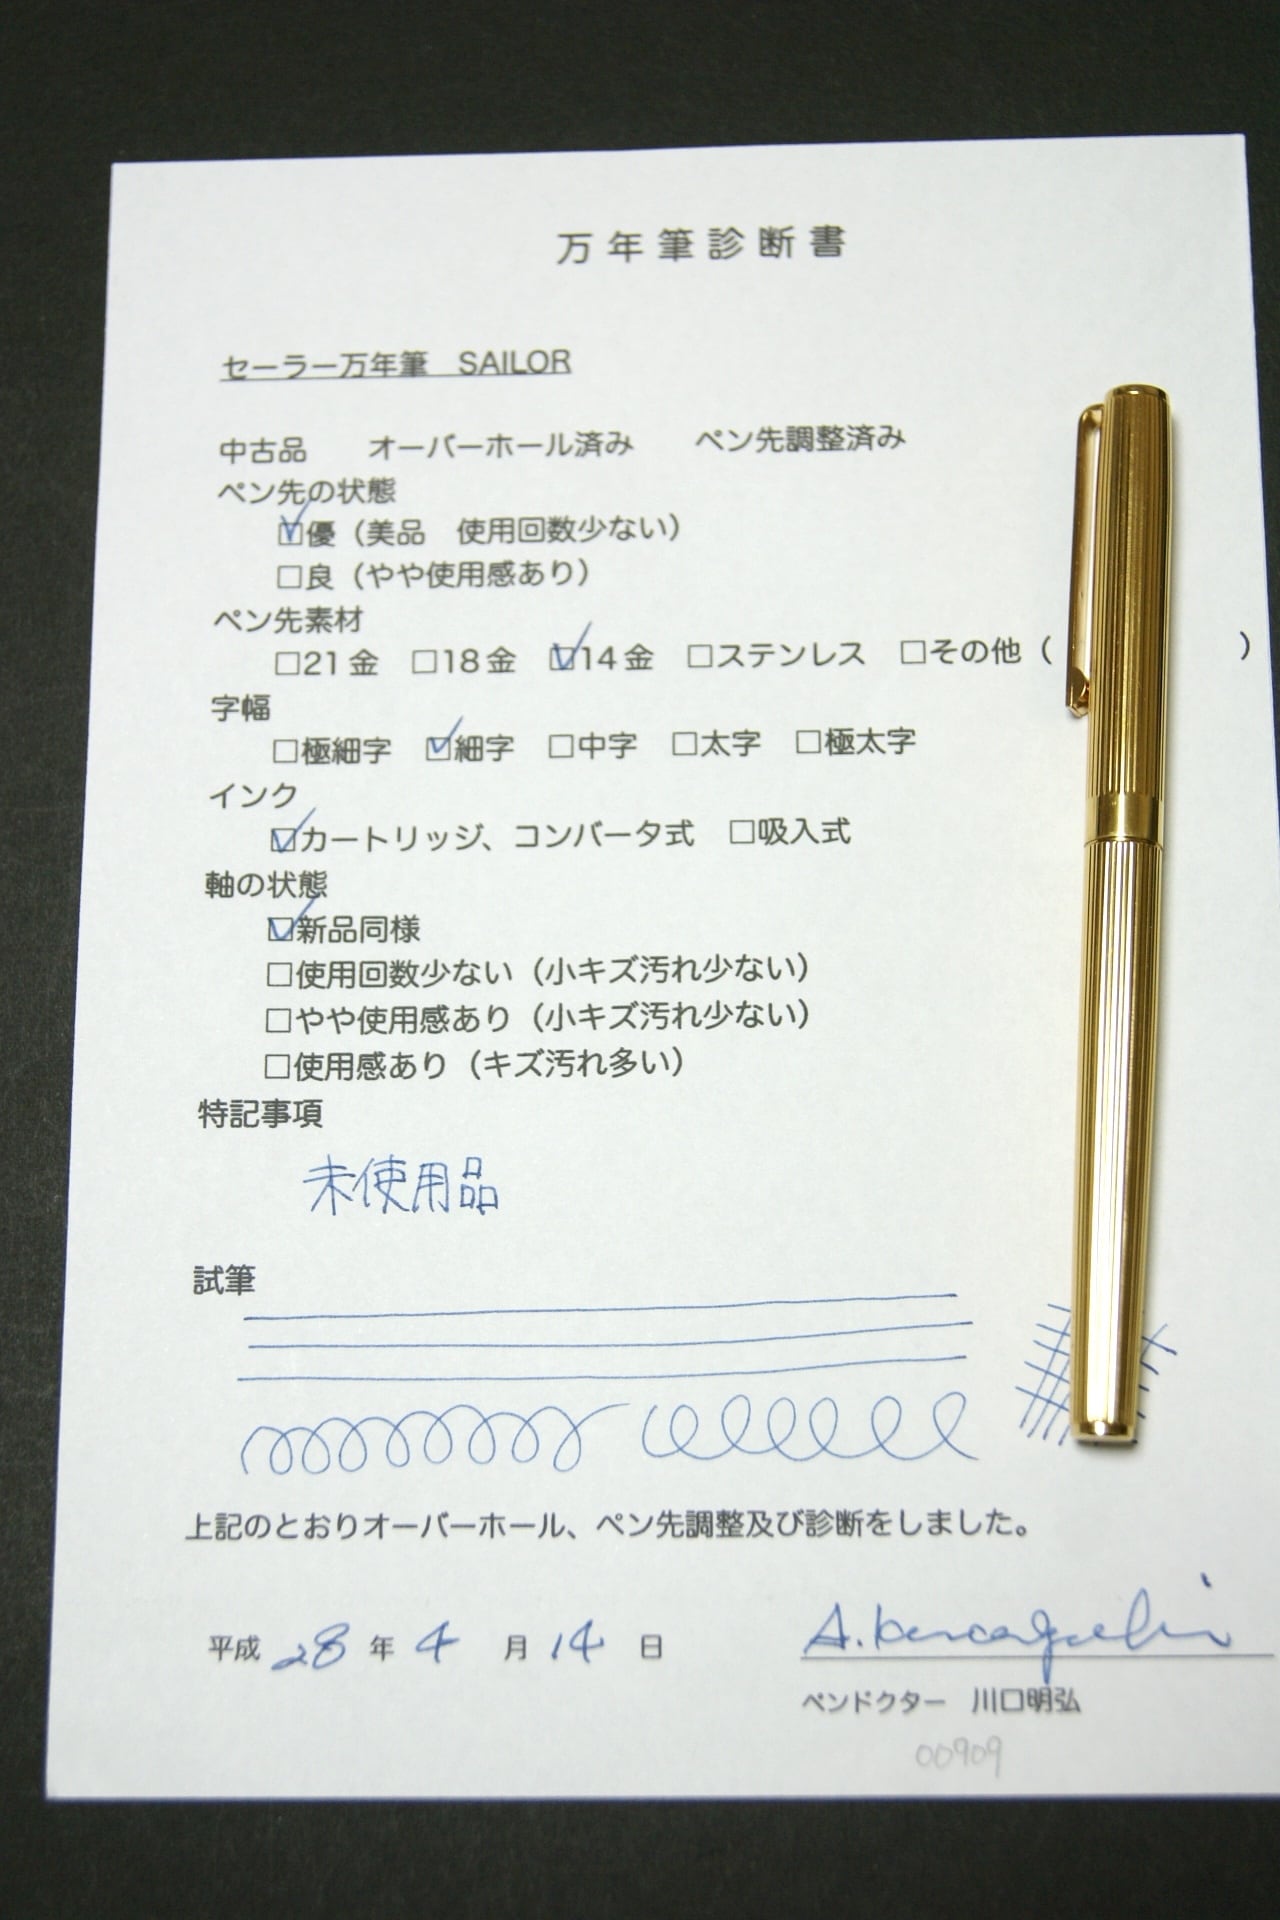 万年筆診断書
セーラー万年筆　SAILOR
中古品　オーバーホール済み　ペン先調整済み
ペン先の状態
☑優（美品　使用回数少ない）
□良（やや使用感あり）
ペン先素材
□21金　□18金　☑14金　□ステンレス　□その他（　　　）
字幅
□極細字　☑細字　□中字　□太字　□極太字
インク
☑カートリッジ、コンバータ式　□吸入式
軸の状態
☑新品同様
□使用回数少ない（小キズ汚れ少ない）
□やや使用感あり（小キズ汚れ少ない）
□使用感あり（キズ汚れ多い）
特記事項
未使用品
試筆
上記のとおりオーバーホール、ペン先調整及び診断をしました。
平成 28 年 4 月 14 日　A. Kawaguchi
ペンドクター　川口明弘
00909